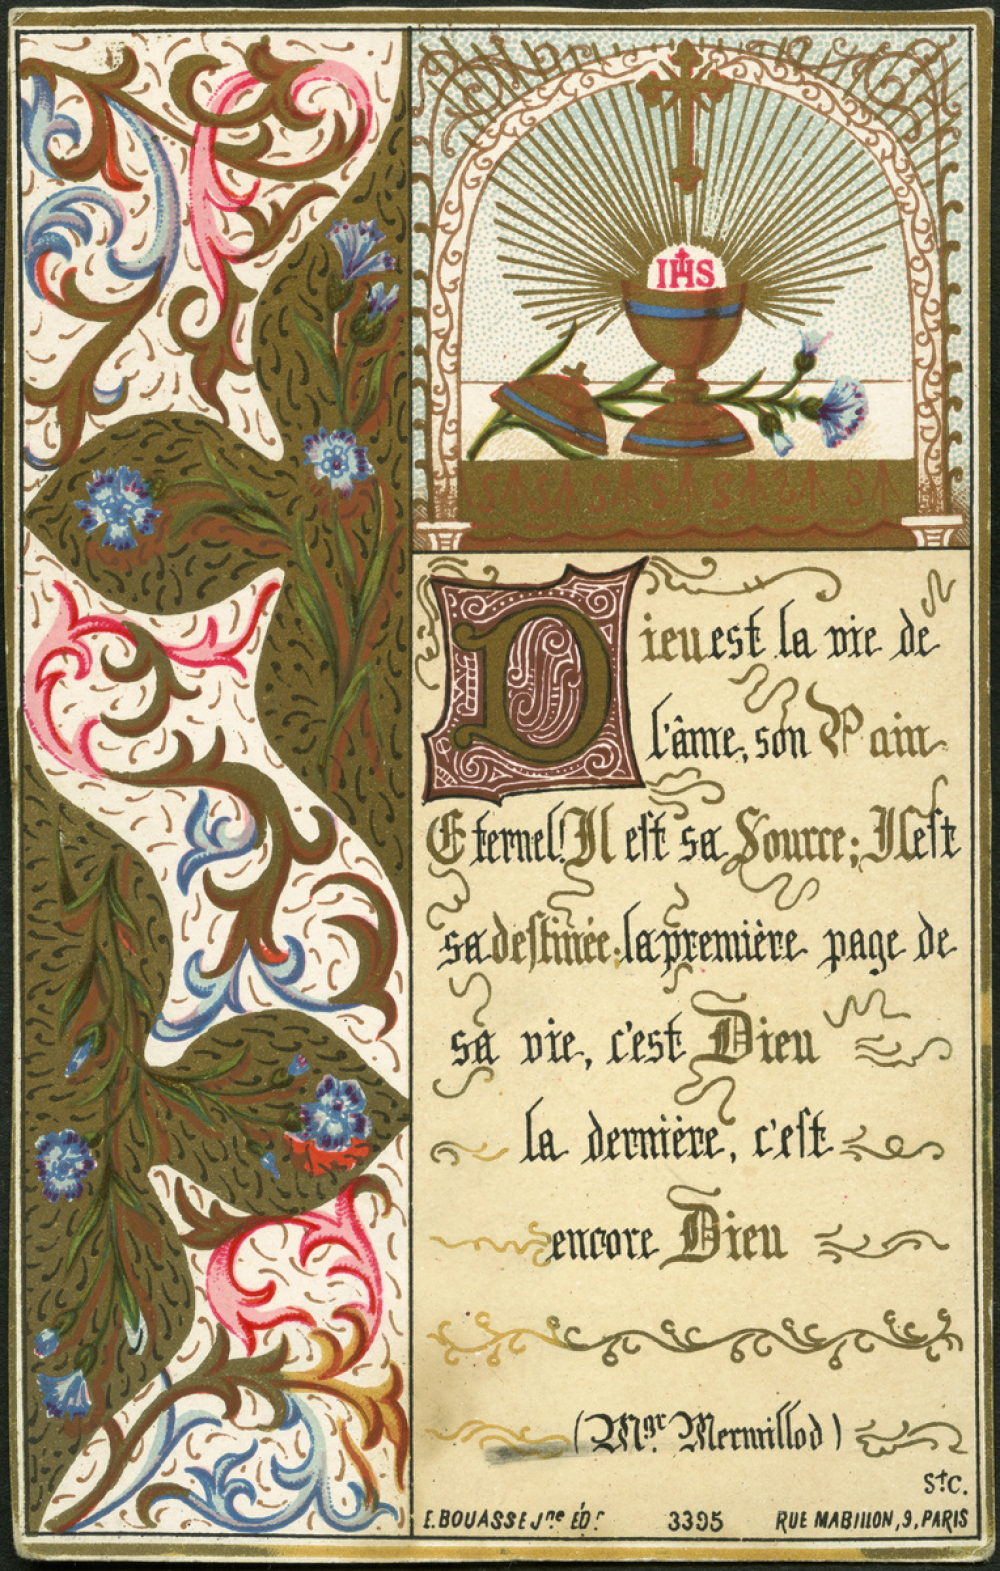 IHS
Dieu est la vie de
l'âme, son Pain
Eternel! Il est sa Source; Il est
sa destinée: la première page de
sa vie, c'est Dieu
la dernière, c'est
encore Dieu
(Mgr. Mermillod)
St C.
E. BOUASSE Jne ÉDr 3395 RUE MABILLON, 9, PARIS